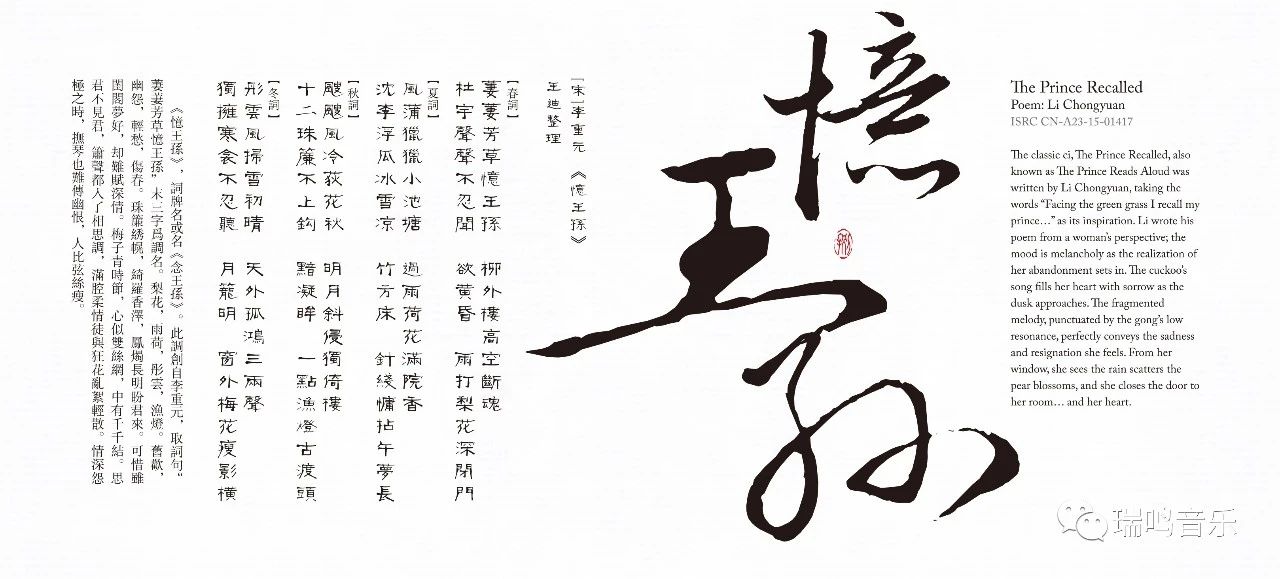 憶王孫
[宋]李重元 《憶王孫》
王迪整理
[春詞]
萋萋芳草憶王孫 柳外樓高空斷魂
杜宇聲聲不忍聞 欲黃昏 雨打梨花深閉門
[夏詞]
風蒲獵獵小池塘 過雨荷花滿院香
沈李浮瓜冰雪涼 竹方床 針綫慵拈午夢長
[秋詞]
颼颼風冷荻花秋 明月斜侵獨倚樓
十二珠簾不上鈎 黯凝眸 一點漁燈古渡頭
[冬詞]
彤雲風掃雪初晴 天外孤鴻三兩聲
獨擁寒衾不忍聽 月籠明 窗外梅花瘦影橫
《憶王孫》，詞牌名或名《念王孫》。此調創自李重元，取詞句“
萋萋芳草憶王孫”末二字爲調名。梨花，雨荷，彤雲，漁燈。舊歡，
幽怨，輕愁，傷春。珠簾綉幌，綺羅香澤，鳳燭長明盼君來。可惜雖
閨閣夢好，却難賦深情。梅子青時節，心似雙絲網，中有千千結。思
君不見君，簫聲都入了相思調，滿腔柔情徒與狂花亂絮輕散。情深怨
極之時，撫琴也難傳幽恨，人比弦絲瘦。
The Prince Recalled
Poem: Li Chongyuan
ISRC CN-A23-15-01417
The classic ci, The Prince Recalled, also
known as The Prince Reads Aloud was
written by Li Chongyuan, taking the
words “Facing the green grass I recall my
prince…” as its inspiration. Li wrote his
poem from a woman’s perspective; the
mood is melancholy as the realization of
her abandonment sets in. The cuckoo’s
song fills her heart with sorrow as the
dusk approaches. The fragmented
melody, punctuated by the gong’s low
resonance, perfectly conveys the sadness
and resignation she feels. From her
window, she sees the rain scatters the
pear blossoms, and she closes the door to
her room… and her heart.
瑞鸣音乐